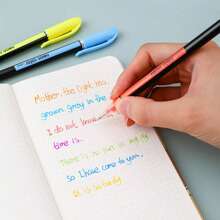 Mother, the light has
grown grey in the
I do not know
time is.
There is no fun in my
so I have come to you.
It is